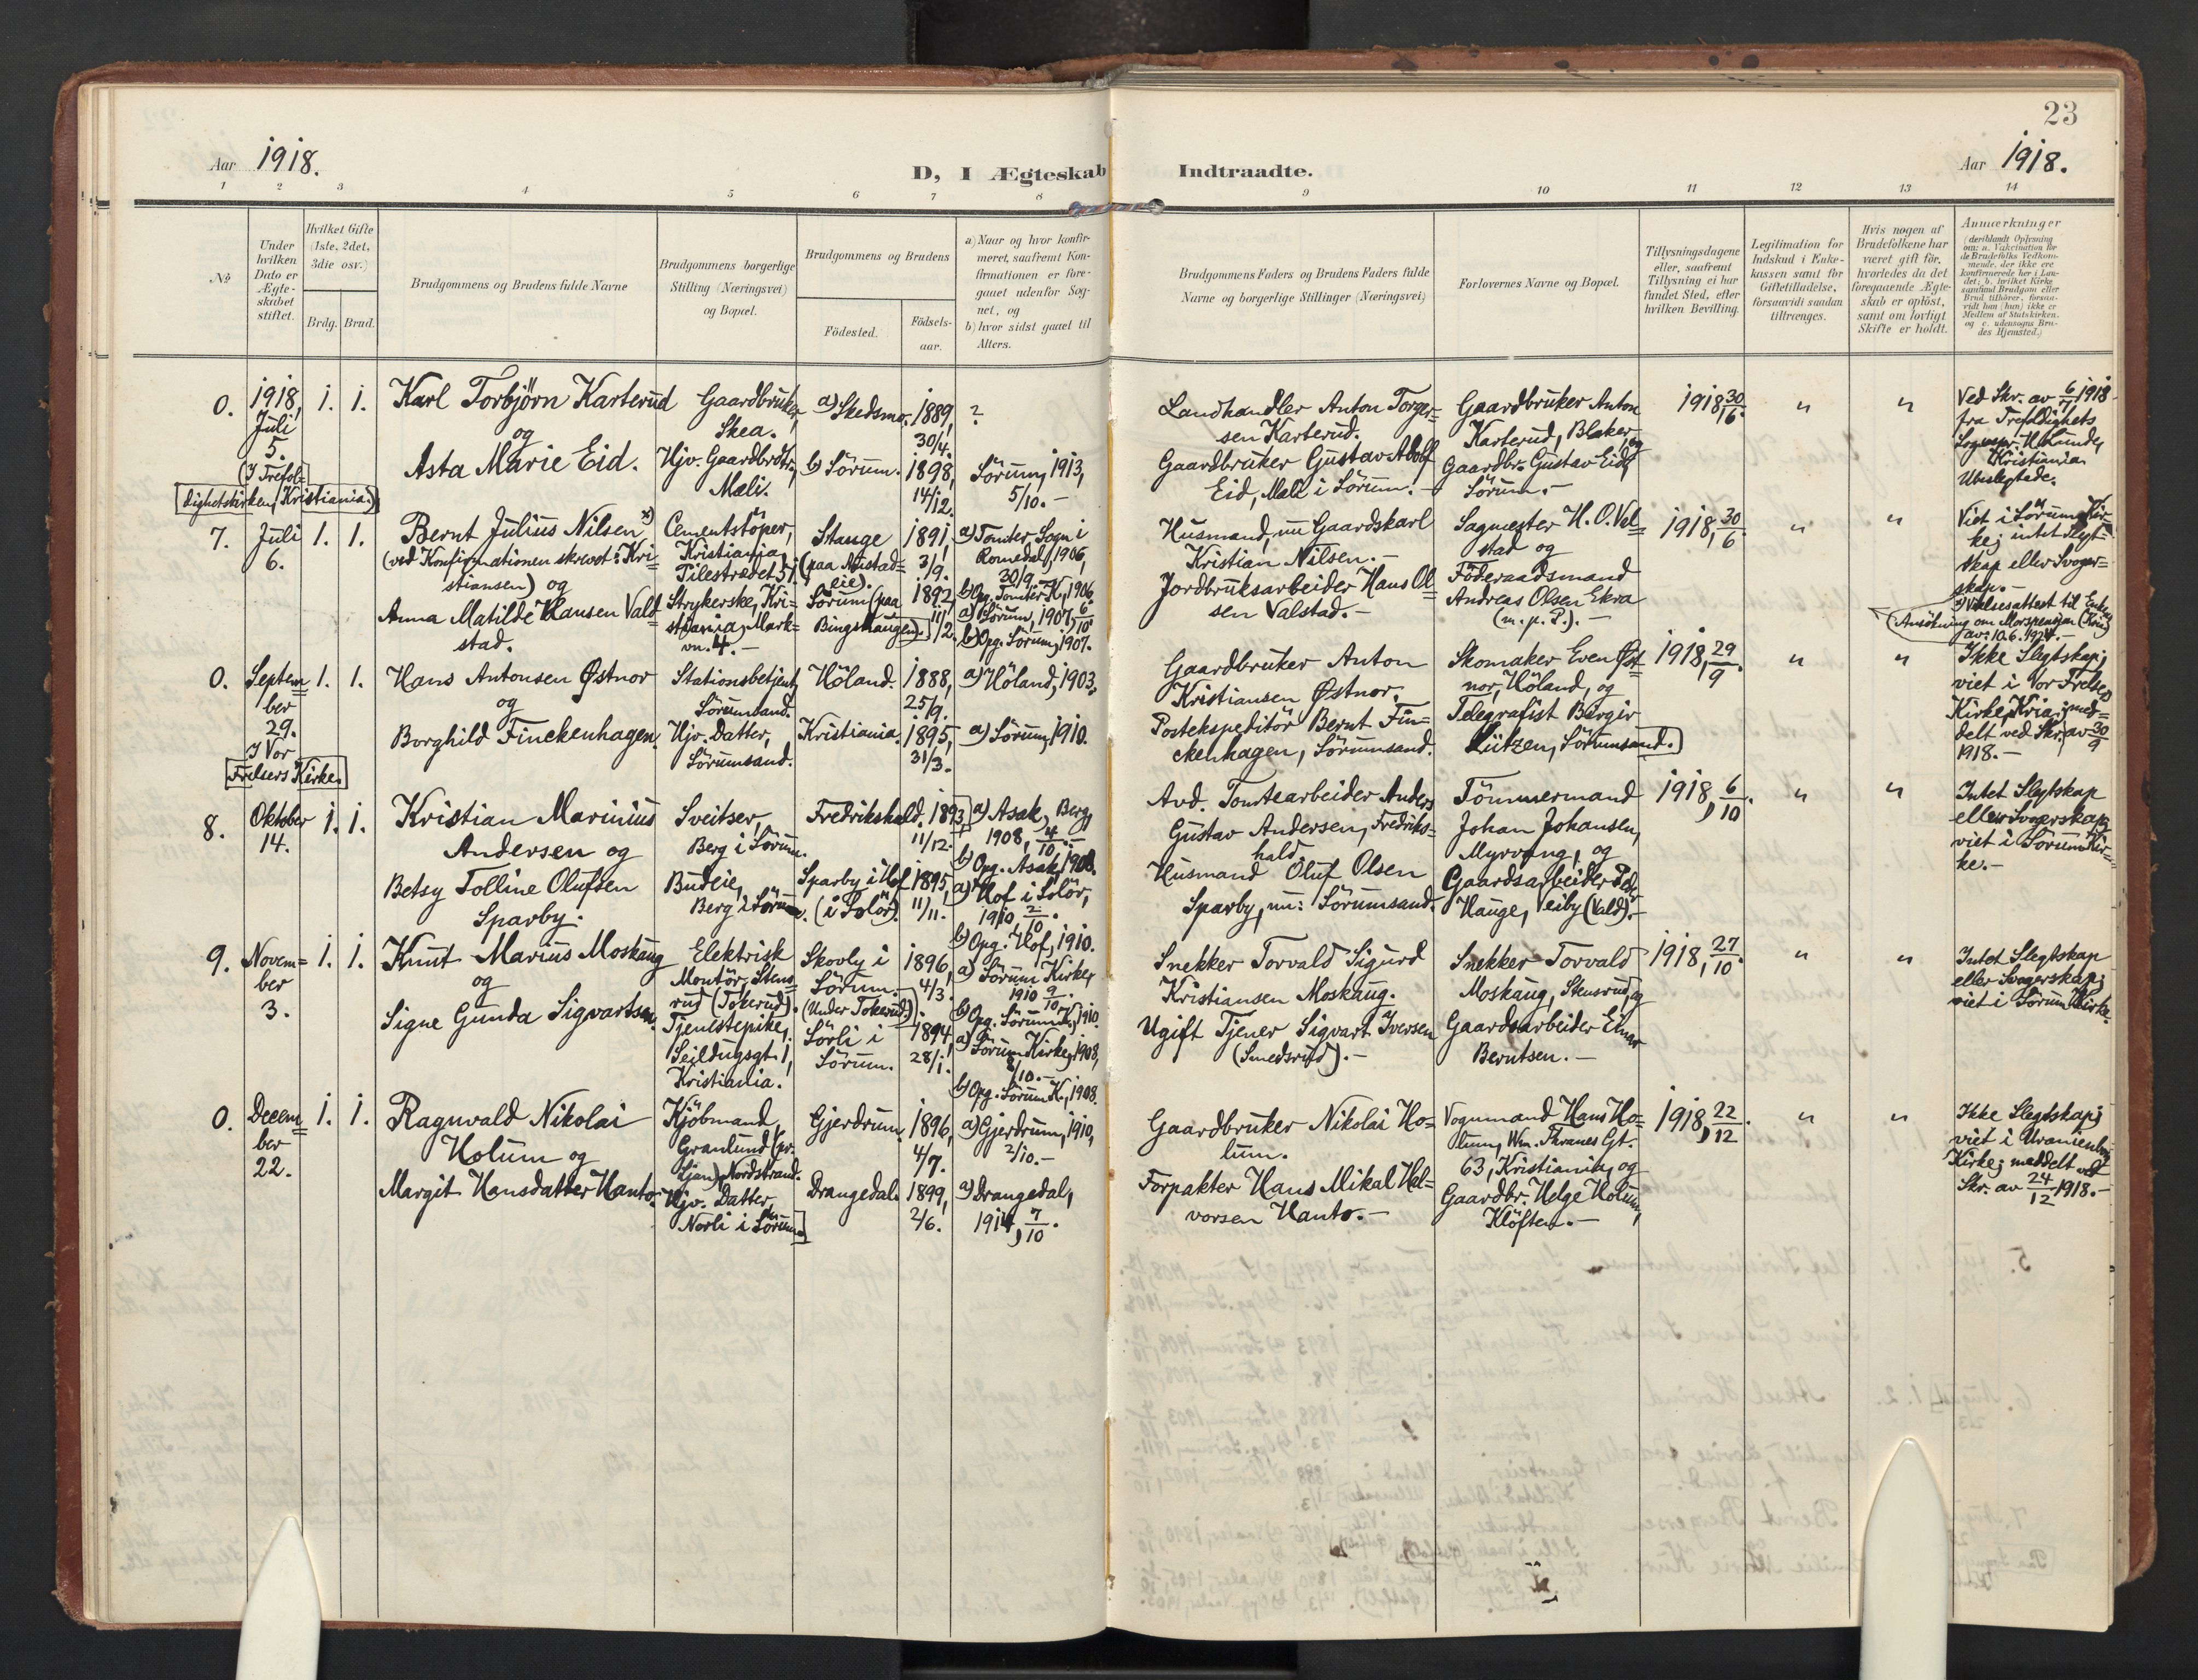 23
Aar 1918.
D, I Ægteskab Indtraadte.
Aar 1918.
1 2 3 4 5 6 7 8 9 10 11 12 13 14
No.
Under
hvilken
Dato er
Ægte-
skabet
stiftet.
Hvilket Gifte
(1ste, 2det,
3die osv.)
Brdg. Brud.
Brudgommens og Brudens fulde Navne
Brudgommens borgerlige
Stilling (Næringsvei)
og Bopæl.
Brudgommens og Brudens
Fødested.
Fødsels-
aar.
a) Naar og hvor konfir-
meret, saafremt Kon-
firmationen er fore-
gaaet udenfor Sog-
net, og
b) hvor sidst gaaet til
Alters.
Brudgommens Faders og Brudens Faders fulde
Navne og borgerlige Stillinger (Næringsvei)
Forlovernes Navne og Bopæl.
Tillysningsdagene
eller, saafremt
Tillysning ei har
fundet Sted, efter
hvilken Bevilling.
Legitimation for
Indskud i Enke-
kassen samt for
Giftetilladelse,
forsaavidt saadan
tiltrænges.
Hvis nogen af
Brudefolkene har
været gift før,
hvorledes da det
foregaaende Ægte-
skab er opløst,
samt om lovligt
Skifte er holdt.
Anmærkninger
(deriblandt Oplysning
om: a. Vakcination for
de Brudefolks Vedkom-
mende, der ikke ere
konfirmerede her i Lan-
det; b. hvilket Kirke-
samfund Brudgom eller
Brud tilhører, forsaa-
vidt han (hun) ikke er
Medlem af Statskirken,
og c. udensogns Bru-
des Hjemsted.)
0.
1918,
Juli
5.
(I Trefol=
dighetskirken, Kristiania.)
1. 1.
Karl Torbjörn Karterud
og
Asta Marie Eid.
Gaardbruker,
Skea.
Hjv. Gaardbrdtr.,
Mæli.
a) Skedsmo.
b) Sörum.
1889,
30/4.
1898,
14/12.
?
Sörum, 1913,
5/10.-
Landhandler Anton Torger=
sen Karterud.
Gaardbruker Gustav Adolf
Eid, Mæli i Sörum.-
Gaardbruker Anton
Karterud, Blaker, og
Gaardbr. Gustav Eid,
Sörum.-
1918, 30/6.
" "
Ved Skr. av 6/7 1918
fra Trefoldighets
Kristiania
Ubeslegtede.
7.
Juli
6.
1. 1.
Bernt Julius Nilsen x)
(ved Konfirmationen skrevet: Kri=
stiansen) og
Anna Matilde Hansen Val=
stad.
Cementstöper,
Kristiania,
Pilestrædet 51.
Strykerske, Kri=
stiania, Mark=
vn. 4.-
Stange
(paa Nustad=
eie).
Sörum (paa
Bingshaugen.)
1891,
3/9.
1892,
11/2.
a) Tomter Sogn i
Romedal, 1906,
30/9.-
b) Opg. Tomter K., 1906.
a) Sörum, 1907, 6/10.
b) Opg. Sörum, 1907.
Husmand, nu Gaardskarl
Kristian Nilsen.-
Jordbruksarbeider Hans Ol=
sen Valstad.-
Sagmester H. O. Vel=
stad og
Föderaadsmand
Andreas Olsen Ekra
(m. p. P.).-
1918, 30/6.
" "
Viet i Sörum Kir=
ke; intet Slegt=
skap eller Svoger=
skap.-
x) Vielsesattest til
Ansökning om Morspension
av: 10.6.1924.-
0.
Septem=
ber
29.
I Vor
Frelsers Kirke.
1. 1.
Hans Antonsen Østnor
og
Borghild Finckenhagen.
Stationsbetjent,
Sörumsand.
Hjv. Datter,
Sörumsand.
Höland.
Kristiania.
1888,
25/9.
1895,
31/3.
a) Höland, 1903.
a) Sörum, 1910.
Gaardbruker Anton
Kristiansen Østnor.
Postekspeditör Bernt Fin=
ckenhagen, Sörumsand.
Skomaker Even Øst=
nor, Höland, og
Telegrafist Birger
Lützen, Sörumsand.
1918, 29/9.
" "
Ikke Slegtskap;
viet i Vor Frelsers
Kirke, Kria; med=
delt ved Skr. av 30/9
1918.-
8.
Oktober
14.
1. 1.
Kristian Marinius
Andersen og
Betsy Tolline Olufsen
Sparby.
Sveitser,
Berg i Sörum.
Budeie,
Berg i Sörum.
Fredrikshald.
Sparby i Hof
(i Solör).
1893,
11/12.
1895,
11/11.
a) Asak, Berg,
1908, 4/10.-
b) Opg. Asak, 1908.
a) Hof i Solör,
1910, 2/10.
b) Opg. Hof, 1910.
Avd. Tomtearbeider Anders
Gustav Andersen, Fredriks=
hald.
Husmand Oluf Olsen
Sparby, nu: Sörumsand.
Tömmermand
Johan Johansen,
Myrvang, og
Gaardsarbeider Peder
Hauge, Eiby (Vald).-
1918, 6/10.
" "
Intet Slegtskap
eller Svogerskap;
viet i Sörum Kir=
ke.-
9.
Novem=
ber
3.
1. 1.
Knut Marius Moskaug
og
Signe Gunda Sigvartsen.
Elektrisk
Montör, Stens=
rud (Tokerud).
Tjenestepike,
Seildugsgt. 1,
Kristiania.
Skovly i
Sörum.
(Under Tokerud).
Sörli i
Sörum.
1896,
4/3.
1894,
28/1.
a) Sörum Kirke,
1910 9/10.
b) Opg. Sörum K., 1910.
a) Sörum Kirke, 1908,
/10.-
b) Opg. Sörum K., 1908.
Snekker Torvald Sigurd
Kristiansen Moskaug.
Ugift Tjener Sigvart Iversen
(Smedsrud).-
Snekker Torvald
Moskaug, Stensrud, og
Gaardsarbeider Einar
Berntsen.-
1918, 27/10.
" "
Intet Slegtskap
eller Svogerskap;
viet i Sörum Kirke.
0.
Decem=
ber
22.
1. 1.
Ragnvald Nikolai
Holum og
Margit Hansdatter Hanto.
Kjöbmand,
Granlund (pr.
Ljan), Nordstrand.
Hjv. Datter,
Norli i Sörum.
Gjerdrum.
Drangedal.
1896,
4/7.
1899,
2/6.
a) Gjerdrum, 1910,
2/10.-
a) Drangedal,
1914, 7/10.
Gaardbruker Nikolai Ho=
lum.
Forpakter Hans Mikal Hal=
vorsen Hanto.-
Vognmand Hans Ho=
lum, Wm. Thranes Gt.
63, Kristiania, og
Gaardbr. Helge Holum,
Klöften.-
1918, 22/12.
" "
Ikke Slegtskap;
viet i Uranienborg
Kirke; meddelt ved
Skr. av 24/12 1918.-